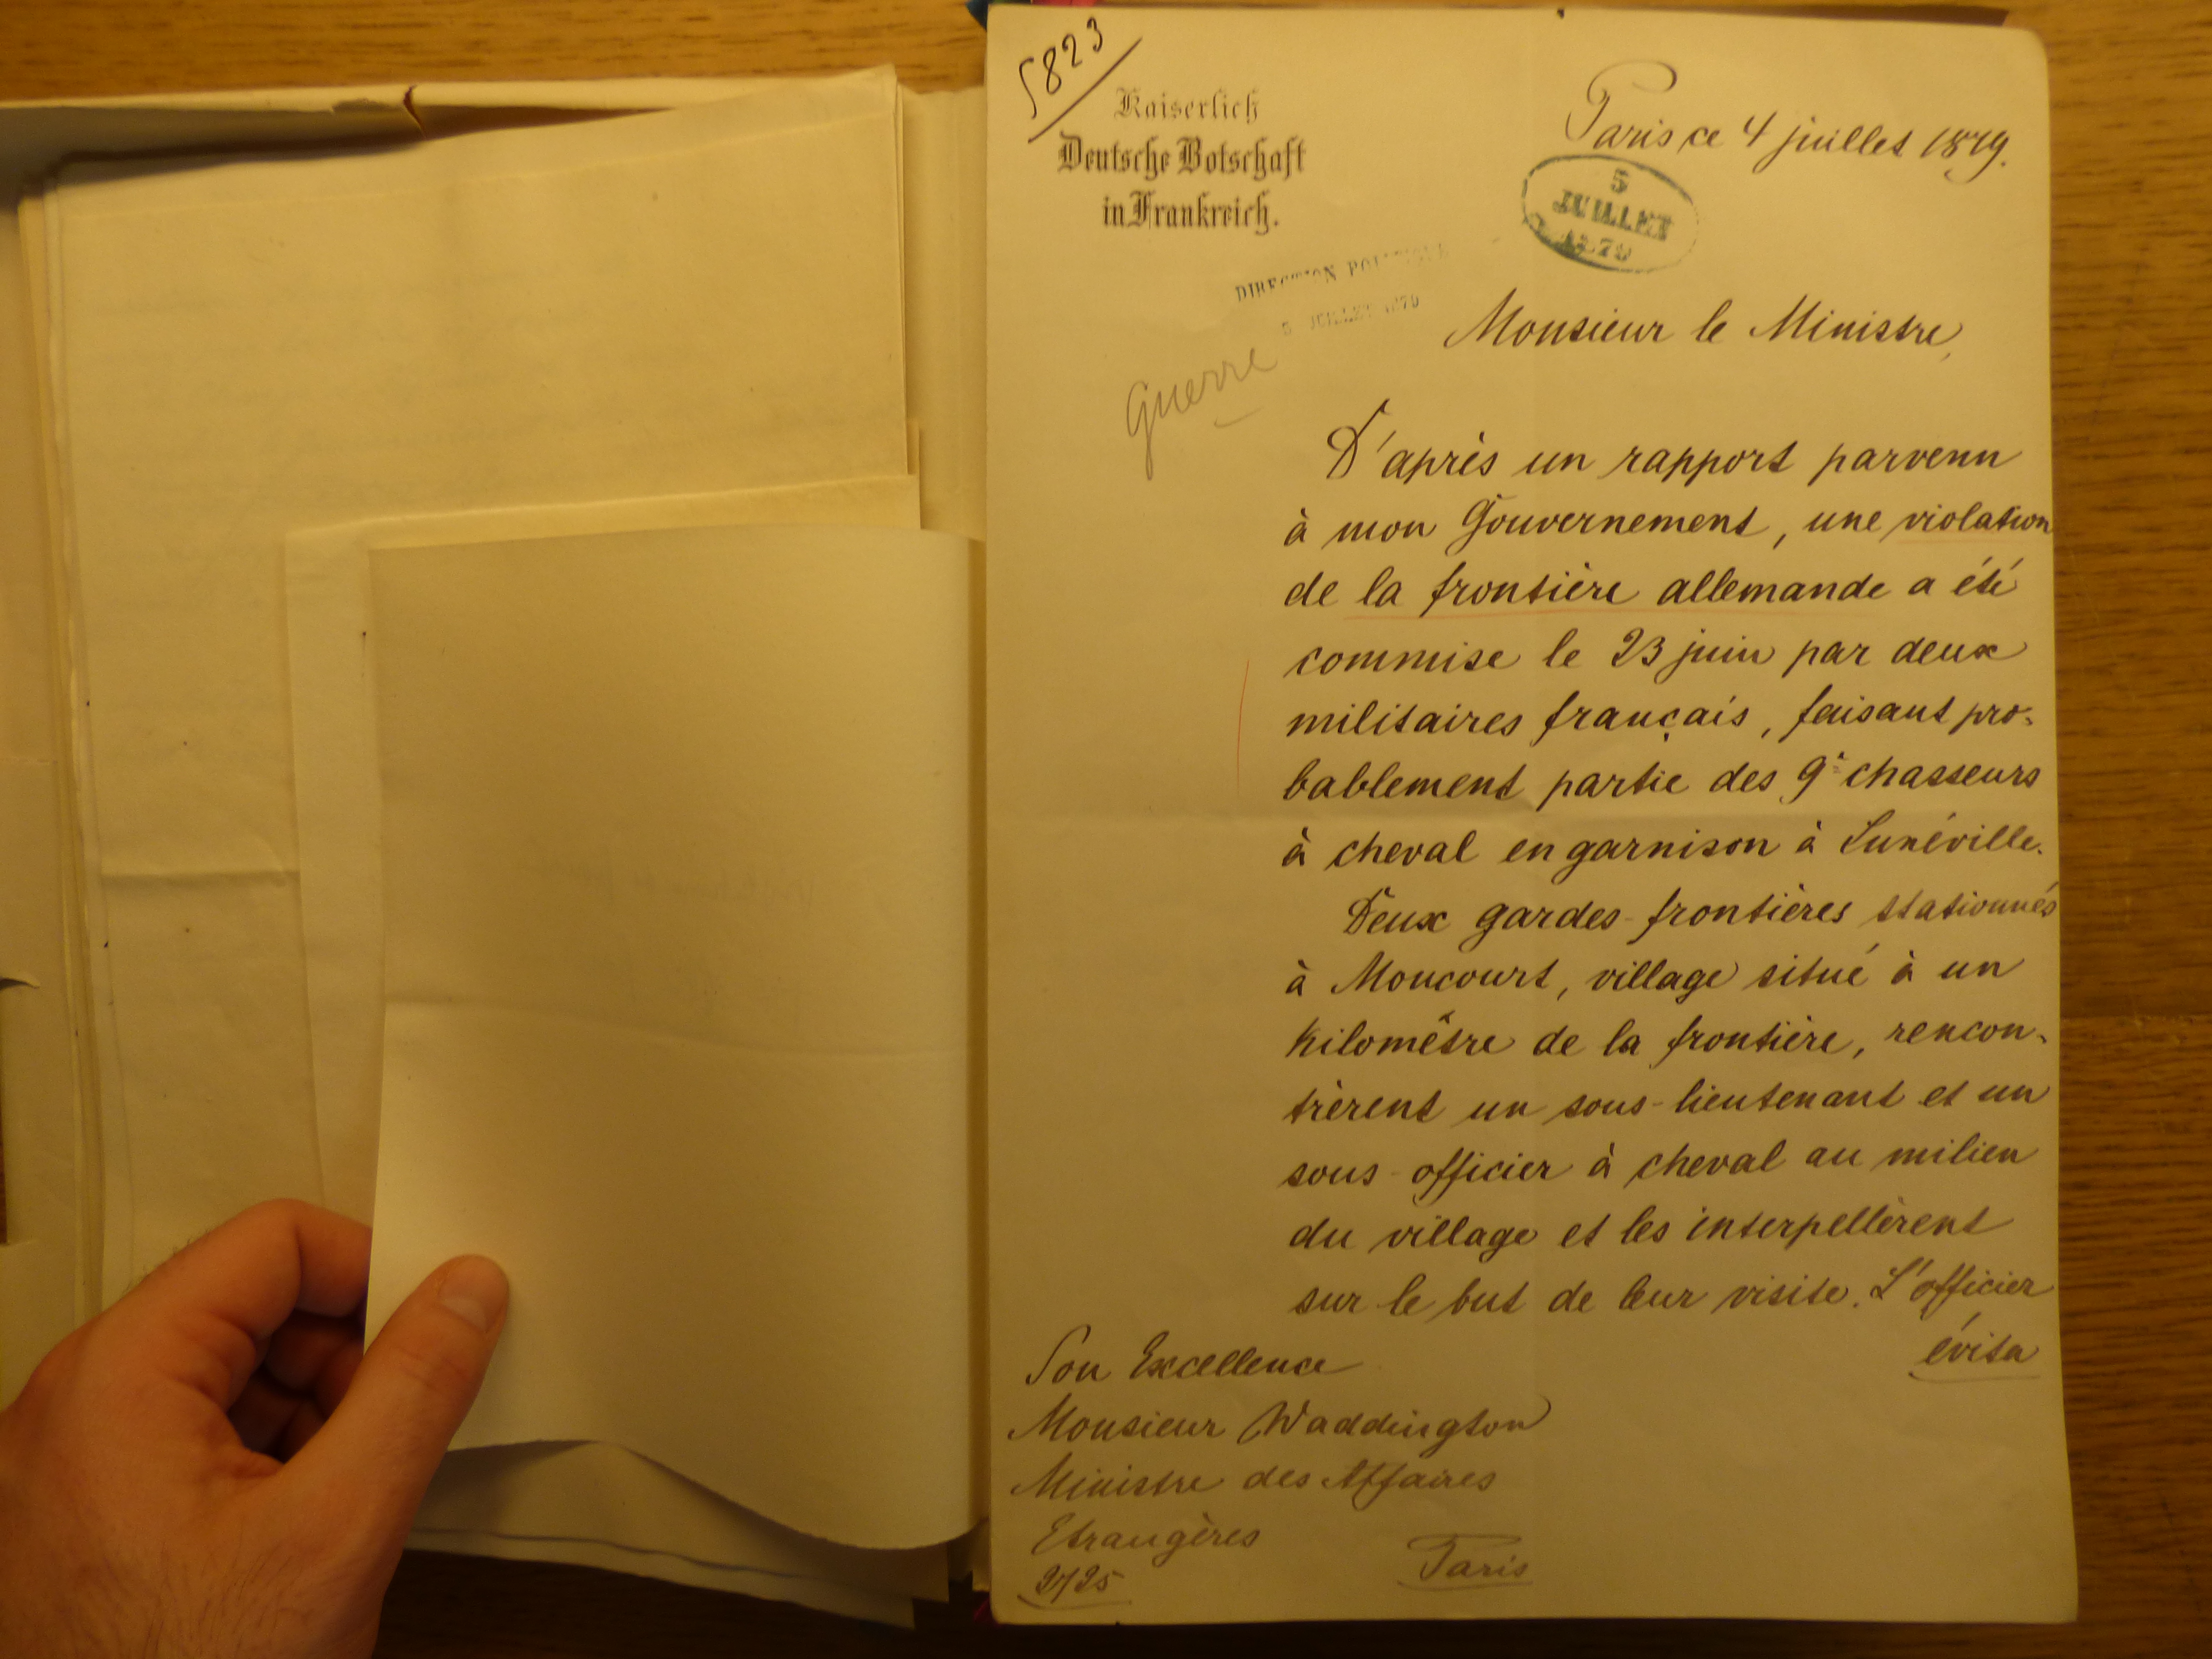 5823
Kaiserlich
Deutsche Botschaft
in Frankreich.
Paris ce 4 juillet 1879.
5
JUILLET
1879
DIRECTION POLITIQUE
5 JUILLET 1879
Guerre
Monsieur le Ministre,
D'après un rapport parvenu
à mon Gouvernement, une violation
de la frontière allemande a été
commise le 23 juin par deux
militaires français, faisant pro-
bablement partie des 9e chasseurs
à cheval en garnison à Lunéville.
Deux gardes-frontières stationnés
à Moncourt, village situé à un
kilomètre de la frontière, rencon-
trèrent un sous-lieutenant et un
sous-officier à cheval au milieu
du village et les interpellèrent
sur le but de leur visite. L'officier
évita
Son Excellence
Monsieur Waddington
Ministre des Affaires
Etrangères
Paris
2725